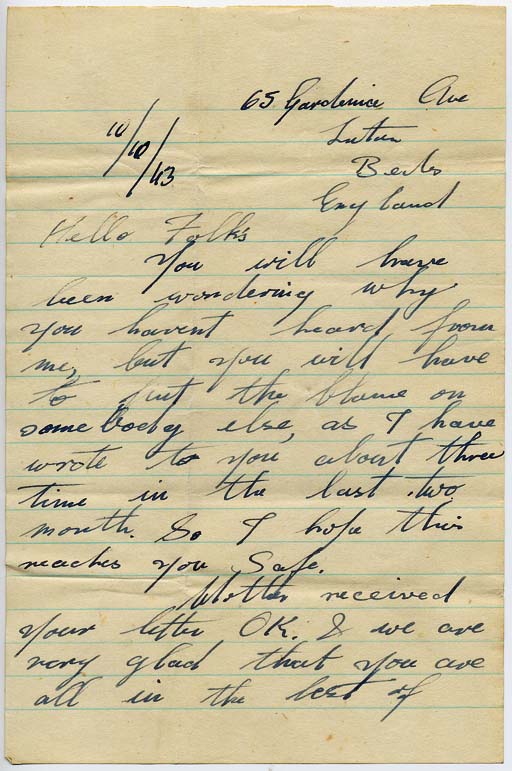 65 Gardenia Ave
Luton
10/10/43
Beds
England
Hello Folks
You will have
been wondering why
you havent heard from
me, but you will have
to put the blame on
somebody else, as I have
wrote to you about three
time in the last two
month. So I hope this
reaches you Safe.
Mother received
your letter OK. & we are
very glad that you are
all in the best of